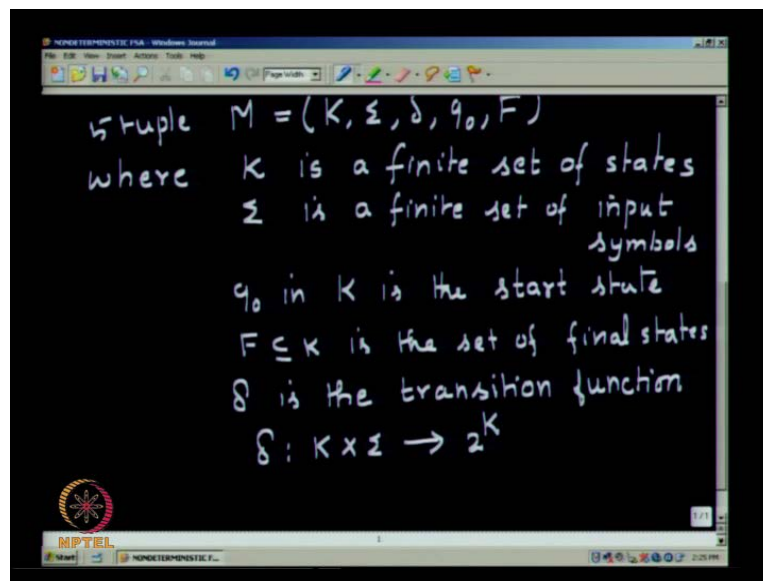 NONDETERMINISTIC FSA - Windows Journal
File Edit View Insert Actions Tools Help
Page Width
5 tuple M = (K, Σ, δ, q₀, F)
where K is a finite set of states
Σ is a finite set of input
symbols
q₀ in K is the start state
F ⊆ K is the set of final states
δ is the transition function
δ : K × Σ → 2^K
1/1
NPTEL
1
Start NONDETERMINISTIC F... 2:25 PM